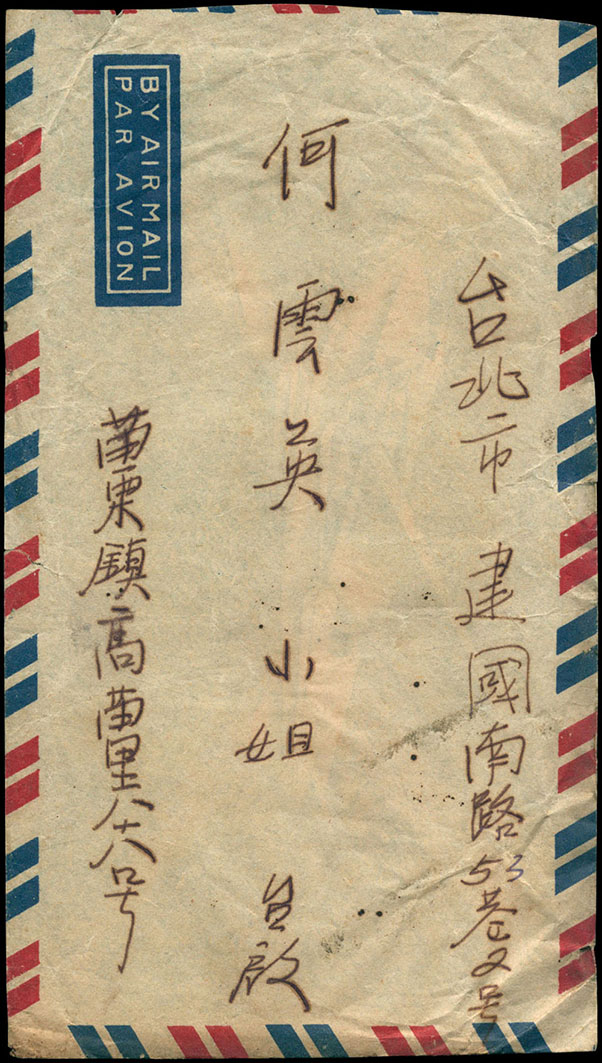 台北市 建國南路53巷2号
何雲英 小姐 啟
苗栗鎮高苗里号
BY AIR MAIL
PAR AVION